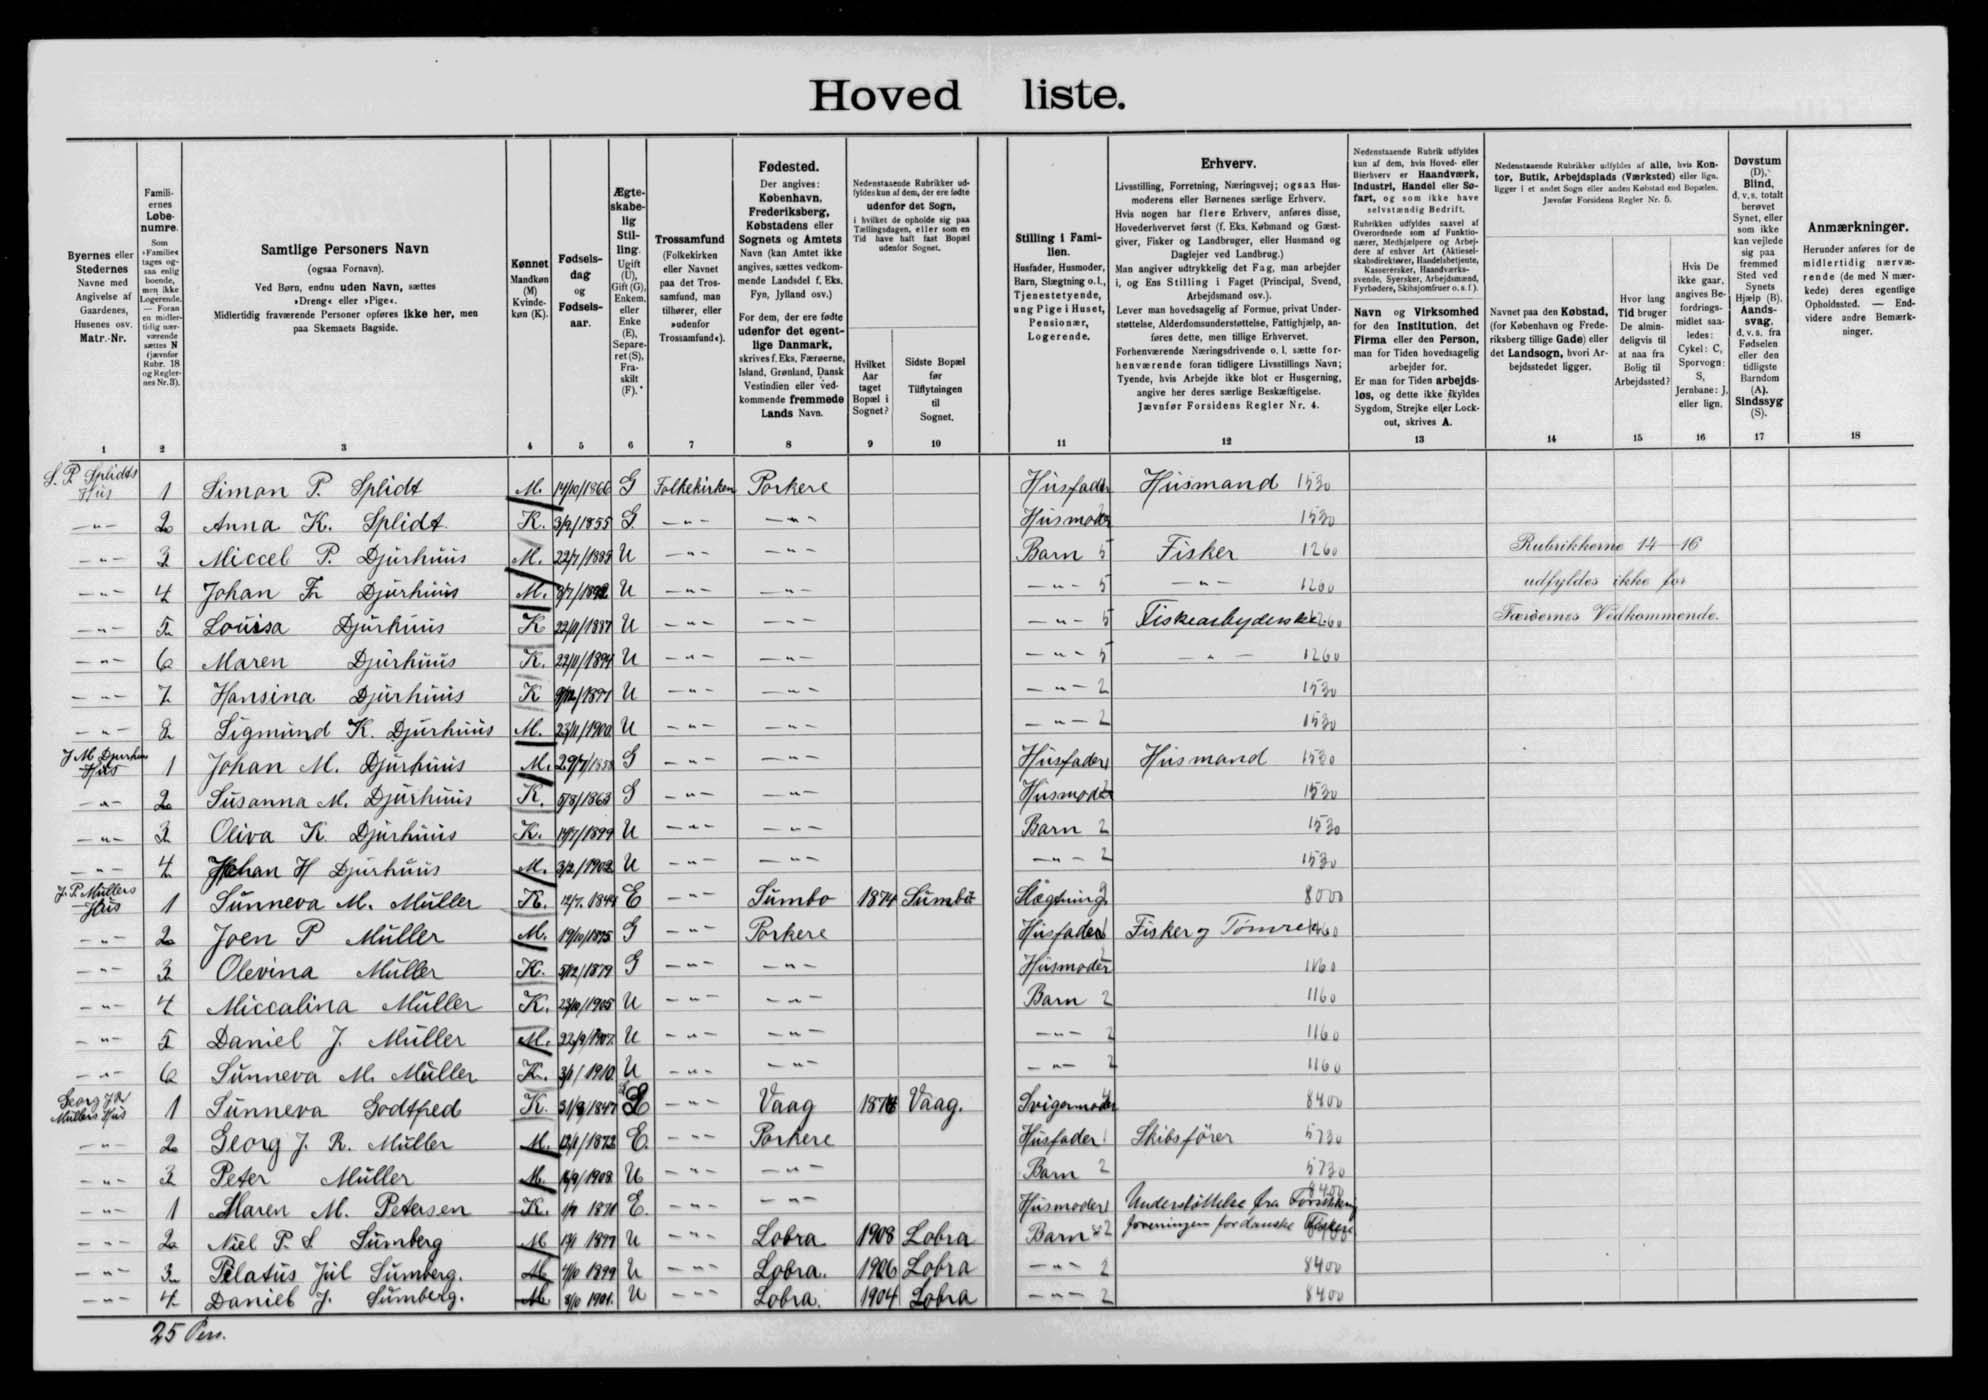 Hoved liste.
Byernes eller Stedernes Navne med Angivelse af Gaardenes, Husenes osv. Matr.-Nr.
Familiernes Løbenumre.
Som »Familie« tages ogsaa enlig boende, men ikke Logerende. — Foran en midlertidig nærværende sættes N (jævnfør Rubr. 18 og Regler-nes Nr. 3).
Samtlige Personers Navn
(ogsaa Fornavn).
Ved Børn, endnu uden Navn, sættes »Dreng« eller »Pige«.
Midlertidig fraværende Personer opføres ikke her, men paa Skemaets Bagside.
Kønnet Mandkøn (M) Kvindekøn (K).
Fødselsdag og Fødselsaar.
Ægteskabelig Stilling. Ugift (U), Gift (G), Enkem. eller Enke (E), Separeret (S), Fraskilt (F).
Trossamfund (Folkekirken eller Navnet paa det Trossamfund, man tilhører, eller »udenfor Trossamfund«).
Fødested.
Der angives: København, Frederiksberg, Købstadens eller Sognets og Amtets Navn (kan Amtet ikke angives, sættes vedkommende Landsdel f. Eks. Fyn, Jylland osv.)
For dem, der ere fødte udenfor det egentlige Danmark, skrives f. Eks. Færøerne, Island, Grønland, Dansk Vestindien eller vedkommende fremmede Lands Navn.
Nedenstaaende Rubrikker udfyldes kun af dem, der ere fødte udenfor det Sogn, i hvilket de opholde sig paa Tællingsdagen, eller som en Tid have haft fast Bopæl udenfor Sognet.
Hvilket Aar taget Bopæl i Sognet?
Sidste Bopæl før Tilflytningen til Sognet.
Stilling i Familien.
Husfader, Husmoder, Barn, Slægtning o.l., Tjenestetyende, ung Pige i Huset, Pensionær, Logerende.
Erhverv.
Livsstilling, Forretning, Næringsvej; ogsaa Husmoderens eller Børnenes særlige Erhverv.
Hvis nogen har flere Erhverv, anføres disse, Hovederhvervet først (f. Eks. Købmand og Gæstgiver, Fisker og Landbruger, eller Husmand og Daglejer ved Landbrug.)
Man angiver udtrykkelig det Fag, man arbejder i, og Ens Stilling i Faget (Principal, Svend, Arbejdsmand osv.).
Lever man hovedsagelig af Formue, privat Understøttelse, Alderdomsunderstøttelse, Fattighjælp, anføres dette, men tillige Erhvervet.
Forhenværende Næringsdrivende o. l. sætte forhenværende foran tidligere Livsstillings Navn; Tyende, hvis Arbejde ikke blot er Husgerning, angive her deres særlige Beskæftigelse.
Jævnfør Forsidens Regler Nr. 4.
Nedenstaaende Rubrik udfyldes kun af dem, hvis Hoved- eller Bierhverv er Haandværk, Industri, Handel eller Søfart, og som ikke have selvstændig Bedrift.
Rubrikken udfyldes saavel af Overordnede som af Funktionærer, Medhjælpere og Arbejdere af enhver Art (Aktieselskabsdirektører, Handelsbetjente, Kasserersker, Haandværkssvende, Syersker, Arbejdsmænd, Fyrbødere, Skibsjomfruer o. s. f.).
Navn og Virksomhed for den Institution, det Firma eller den Person, man for Tiden hovedsagelig arbejder for.
Er man for Tiden arbejdsløs, og dette ikke skyldes Sygdom, Strejke eller Lockout, skrives A.
Nedenstaaende Rubrikker udfyldes af alle, hvis Kontor, Butik, Arbejdsplads (Værksted) eller lign. ligger i et andet Sogn eller anden Købstad end Bopælen.
Jævnfør Forsidens Regler Nr. 5.
Navnet paa den Købstad, (for København og Frederiksberg tillige Gade) eller det Landsogn, hvori Arbejdsstedet ligger.
Hvor lang Tid bruger De almindeligvis til at naa fra Bolig til Arbejdssted?
Hvis De ikke gaar, angives Befordringsmidlet saaledes: Cykel: C, Sporvogn: S, Jernbane: J, eller lign.
Døvstum (D), Blind, d. v. s. totalt berøvet Synet, eller som ikke kan vejlede sig paa fremmed Sted ved Synets Hjælp (B). Aandssvag, d. v. s. fra Fødselen eller den tidligste Barndom (A). Sindssyg (S).
Anmærkninger.
Herunder anføres for de midlertidig nærværende (de med N mærkede) deres egentlige Opholdssted. — Endvidere andre Bemærkninger.
1 2 3 4 5 6 7 8 9 10 11 12 13 14 15 16 17 18
S. P. Splidts Hus 1 Simon P. Splidt M. 14/10/1866 G Folkekirken Porkere Husfader Husmand 1530
—"— 2 Anna K. Splidt K. 3/2/1855 G. —"— —"— Husmoder 1530
—"— 3 Miccel P. Djurhuus M. 22/7/1889 U —"— —"— Barn 5 Fisker 1260 Rubrikkerne 14—16
—"— 4 Johan Fr Djurhuus M. U —"— —"— —"— 5 —"— 1260 udfyldes ikke for
—"— 5 Louisa Djurhuus K 22/11/1887 U —"— —"— —"— 5 1260 Færøernes Vedkommende.
—"— 6 Maren Djurhuus K. 22/11/1894 U —"— —"— —"— 5 —"— 1260
—"— 7 Hansina Djurhuus K U —"— —"— —"— 2 1530
—"— 8 Sigmund K. Djurhuus M. 23/11/1900 U —"— —"— —"— 2 1530
J M Djurhuus Hus 1 Johan M. Djurhuus M. G —"— —"— Husfader 1 Husmand 1530
—"— 2 Susanna M. Djurhuus K. 5/8/1863 G —"— —"— Husmoder 1530
—"— 3 Oliva K. Djurhuus K. 14/7/1899 U —"— —"— Barn 2 1530
—"— 4 Johan H Djurhuus M. 3/2/1902 U —"— —"— —"— 2 1530
J. P. Müllers Hus 1 Sunneva M. Müller K. E —"— Sumbo 1874 Sumbø Slægtning 8000
—"— 2 Joen P Müller M. 19/10/1875 G —"— Porkere Husfader 1 Fisker og Tømrer 1160
—"— 3 Olevina Müller K. 5/12/1879 G —"— —"— Husmoder 1160
—"— 4 Miccalina Müller K. 23/10/1905 U —"— —"— Barn 2 1160
—"— 5 Daniel J. Müller M. 22/9/1907. U —"— —"— —"— 2 1160
—"— 6 Sunneva M. Müller K. 3/1/1910. U —"— —"— —"— 2 1160
Georg J R Müllers Hus 1 Sunneva Godtfred K. 31/8/1847 —"— Vaag Vaag. Svigermoder 8400
—"— 2 Georg J. R. Müller M. 12/1/1872 E. —"— Porkere Husfader 1 Skibsfører 5730
—"— 3 Peter Müller M. U —"— —"— Barn 2 5730
—"— 1 Maren M. Petersen K. E. —"— —"— Husmoder 1 Understøttelse fra Forsikrings 8400
—"— 2 Niel P. S. Sumberg M U —"— Lobra 1908 Lobra Barn 2 foreningen for danske Fiskere
—"— 3 Pilatus Jul Sumberg. M 4/10 1899 U —"— Lobra. 1906 Lobra —"— 2 8400
—"— 4 Daniel J. Sumberg. M 8/10 1901. U —"— Lobra. 1904 Lobra —"— 2 8400
25 Pers.